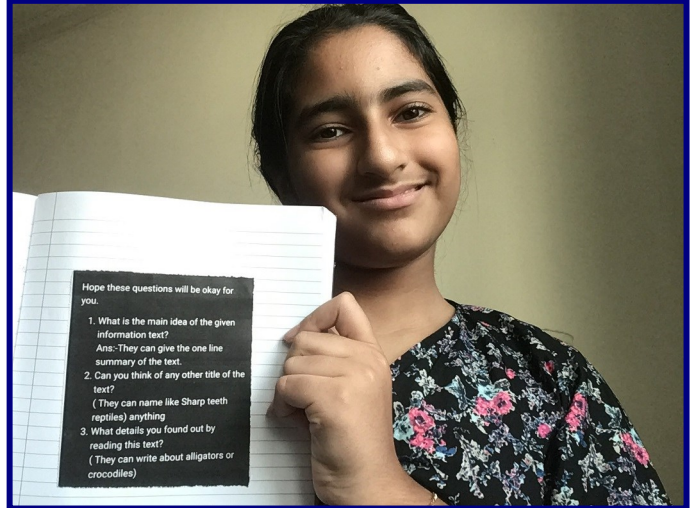 Hope these questions will be okay for
you.
1. What is the main idea of the given
information text?
Ans:-They can give the one line
summary of the text.
2. Can you think of any other title of the
text?
( They can name like Sharp teeth
reptiles) anything
3. What details you found out by
reading this text?
( They can write about alligators or
crocodiles)